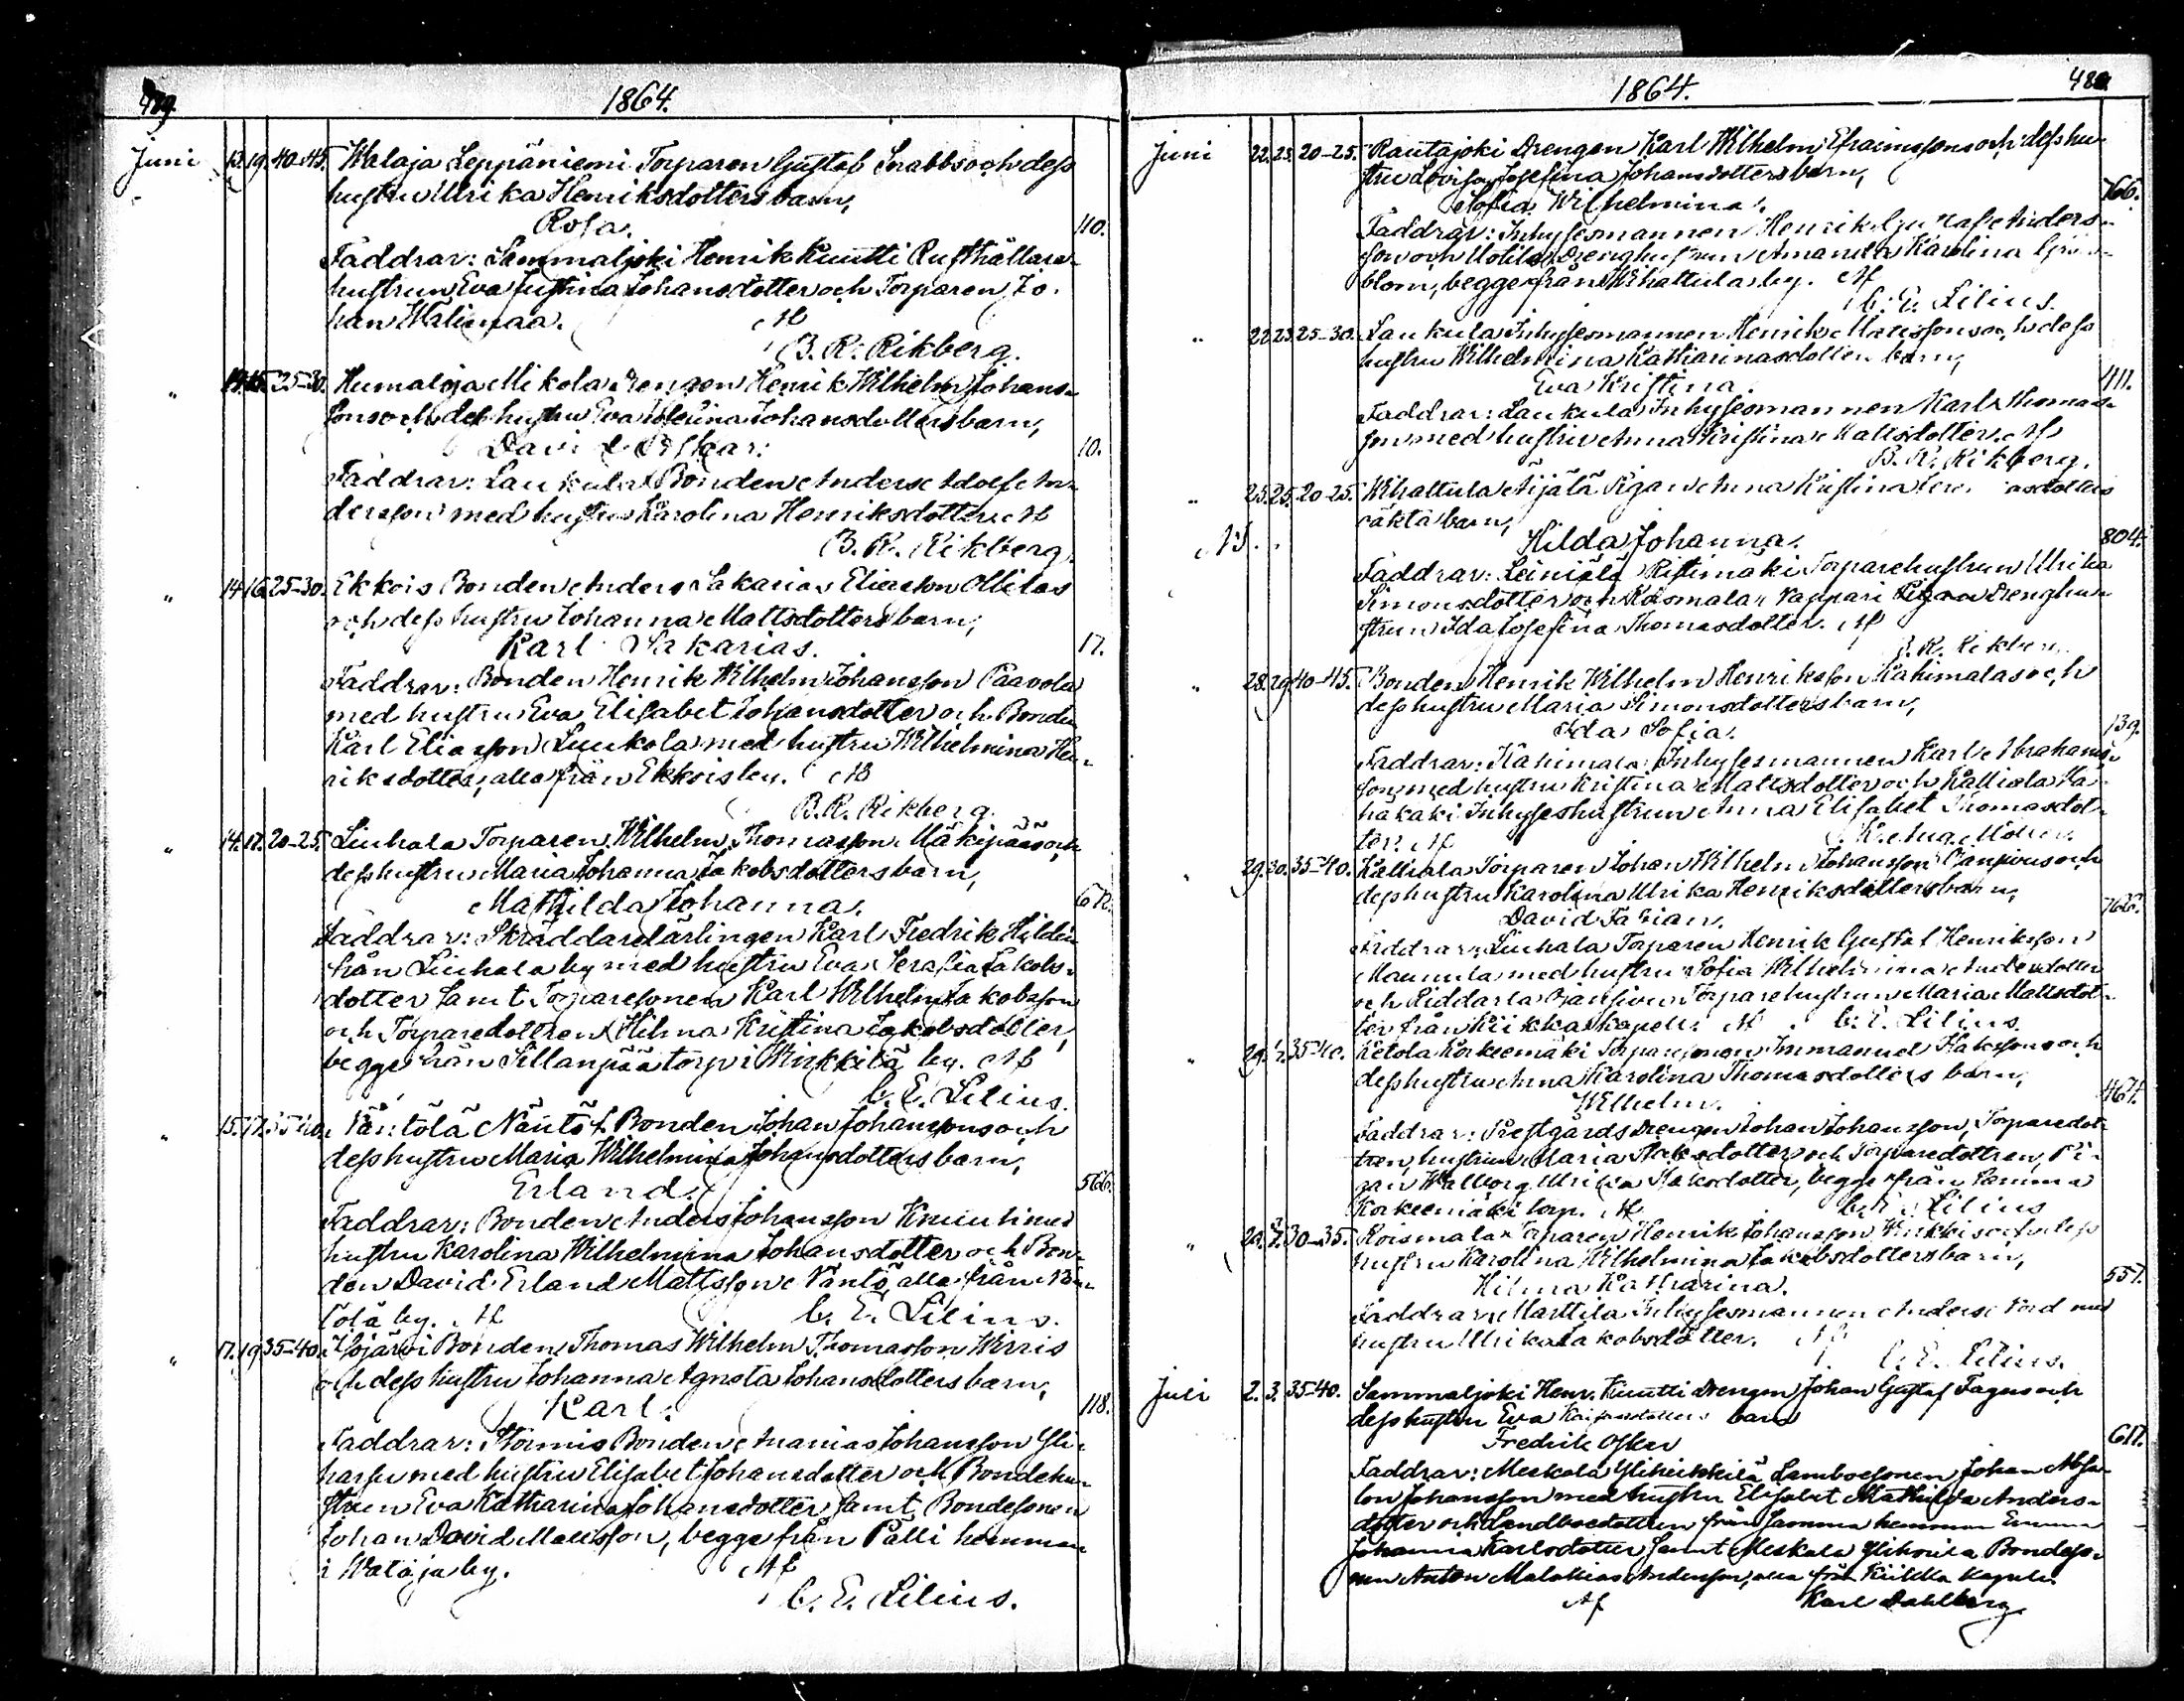 1864.
Juni 13. 19. 40-45. Walaja Leppäniemi Torparen Gustaf Snabbs och dess
hustru Ulrika Henriksdotters barn,
Rosa. 110.
Faddrar: Sammaljoki Henrik Kuutti Rusthållare-
hustrun Eva Justina Johansdotter och Torparen Jo-
han Walimaa. Af
B. R. Rikberg.
" 25-30. Humaloja Mikola Drengen Henrik Wilhelm Johans-
sons och dess hustru Eva Johansdotters barn,
David Oskar. 10.
Faddrar: Laukula Bonden Anders Adolf An-
dersson med hustru Karolina Henriksdotter. Af
B. R. Rikberg.
" 14. 16. 25-30. Ekkois Bonden Anders Sakarias Eliasson Ollilas
och dess hustru Johanna Mattsdotters barn,
Karl Sakarias. 17.
Faddrar: Bonden Henrik Wilhelm Johansson Paavola
med hustru Eva Elisabet Johansdotter och Bonden
Karl Eliasson Luukola med hustru Wilhelmina Hen-
riksdotter, alla från Ekkois by. Af
B. R. Rikberg.
" 14. 17. 20-25. Liuhala Torparen Wilhelm Thomasson Mäkipääs och
dess hustru Maria Johanna Jakobsdotters barn,
Mathilda Johanna.
Faddrar: Skräddarelärlingen Karl Fredrik Hildén
från Liuhala by med hustru Eva Serafia Jakobs-
dotter samt Torparesonen Karl Wilhelm Jakobsson
och Torparedottren Hilma Kristina Jakobsdotter,
begge från Sillanpää torp i Wirkkilä by. Af
C. E. Lilius.
" 15. 17. 35-40. Näntölä Näntös Bonden Johan Johanssons och
dess hustru Maria Wilhelmina Johansdotters barn,
Erland. 566.
Faddrar: Bonden Anders Johansson Knuuti med
hustru Karolina Wilhelmina Johansdotter och Bon-
den David Erland Mattsson Näntö, alla från Nän-
tölä by. Af C. E. Lilius.
" 17. 19. 35-40. Illojärvi Bonden Thomas Wilhelm Thomasson Wirris
och dess hustru Johanna Agneta Johansdotters barn,
Karl. 118.
Faddrar: Stormis Bonden Ananias Johansson Yli-
harsu med hustru Elisabet Johansdotter och Bondehu-
strun Eva Katharina Johansdotter samt Bondesonen
Johan David Mattsson, begge från Palli hemman
i Walaja by. Af
C. E. Lilius.
1864.
Juni 22. 23. 20-25. Rautajoki Drengen Karl Wilhelm Efraimssons och dess hu-
stru Lovisa Josefina Johansdotters barn,
Sofia Wilhelmina. 766.
Faddrar: Inhysesmannen Henrik Anders-
son och Drenghustrun Amanda Karolina
blom, begge från Wihattula by. Af
C. E. Lilius.
" 22. 23. 25-30. Laukula Inhysesmannen Henrik Mattssons och dess
hustru Wilhelmina Katharinasdotters barn,
Eva Kristina. 411.
Faddrar: Laukula Inhysesmannen Karl Thomas-
son med hustru Anna Kristina Mattsdotter. Af
B. R. Rikberg.
" 25. 25. 20-25. Wihattula Äijälä Pigan Anna Kristina
oäkta barn,
Hilda Johanna. 804.
Faddrar: Leiniälä Ristimäki Torparehustrun Ulrika
Simonsdotter och Koismala Vappari Drenghu-
strun Ida Josefina Thomasdotter. Af
B. R. Rikberg
" 28. 29. 40-45. Bonden Henrik Wilhelm Henriksson Kahimalas och
dess hustru Maria Simonsdotters barn,
Ida Sofia. 139.
Faddrar: Kahimala Inhysesmannen Karl Abrahams-
son med hustru Kristina Mattsdotter och Kalliala
Inhyseshustrun Anna Elisabet Thomasdot-
ter. Af
" 29. 30. 35-40. Kalliala Torparen Johan Wilhelm Johansson och
dess hustru Karolina Ulrika Henriksdotters barn,
David Fabian.
Faddrar: Liuhala Torparen Henrik Gustaf Henriksson
Mannula med hustru Sofia Wilhelmina Andersdotter
och Riddarla Torparehustrun Maria Mattsdot-
ter från Kiikka kapell. Af C. E. Lilius.
" 29. 35-40. Ketola Korkeemäki Torparesonen Immanuel Isakssons och
dess hustru Anna Karolina Thomasdotters barn,
Wilhelm. 467.
Faddrar: Prestgårds Drengen Johan Johansson, Torparedot-
tren, hustrun Maria Isaksdotter och Torparedottren, Pi-
gan Walborg Ulrika Isaksdotter, begge från samma
Korkeemäki torp. Af C. E. Lilius
" 30-35. Koismala Torparen Henrik Johansson och dess
hustru Karolina Wilhelmina Jakobsdotters barn,
Hilma Katharina. 557.
Faddrar: Marttila Inhysesmannen Anders Nord med
hustru Ulrika Jakobsdotter. Af
C. E. Lilius.
Juli 2. 3. 35-40. Sammaljoki Henr. Kuutti Drengen Johan Gustaf Fagers och
dess hustru Eva Kaisasdotters barn
Fredrik Oskar 617.
Faddrar: Meskala Landbosonen Johan Absa-
lon Johansson med hustru Elisabet Mathilda Anders-
dotter och Landbodottren från samma hemman Emma
Johanna Karlsdotter samt Meskala Bondeso-
nen Anton Malakias Andersson, alla från Kiikka Kapell.
Af Karl Dahlberg